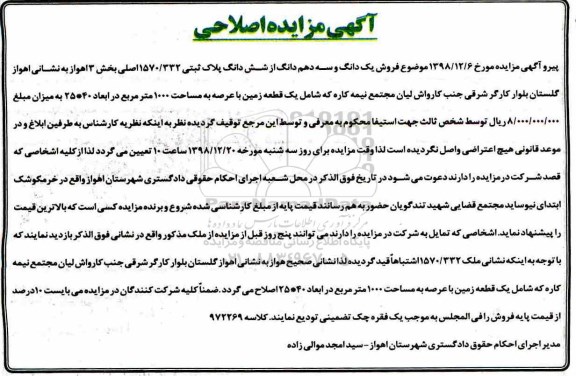 آگهی مزایده اصلاحی
پیرو آگهی مزایده مورخ ۱۳۹۸/۱۲/۶ موضوع فروش یک دانگ و سه دهم دانگ از شش دانگ پلاک ثبتی ۱۵۷۰/۳۳۲ اصلی بخش ۳ اهواز به نشانی اهواز
گلستان بلوار کارگر شرقی جنب کارواش لیان مجتمع نیمه کاره که شامل یک قطعه زمین با عرصه به مساحت ۱۰۰۰ متر مربع در ابعاد ۴۰*۲۵ به میزان مبلغ
۸/۰۰۰/۰۰۰/۰۰۰ ریال توسط شخص ثالث جهت استیفا محکوم به معرفی و توسط این مرجع توقیف گردیده نظر به اینکه نظریه کارشناس به طرفین ابلاغ و در
موعد قانونی هیچ اعتراضی واصل نگردیده است لذا وقت مزایده برای روز سه شنبه مورخه ۱۳۹۸/۱۲/۲۰ ساعت ۱۰ تعیین می گردد لذا از کلیه اشخاصی که
قصد شرکت در مزایده را دارند دعوت می شود در تاریخ فوق الذکر در محل شعبه اجرای احکام حقوقی دادگستری شهرستان اهواز واقع در خرمکوشک
ابتدای نیوساید مجتمع قضایی شهید تندگویان حضور به هم رسانند قیمت پایه از مبلغ کارشناسی شده شروع و برنده مزایده کسی است که بالاترین قیمت
را پیشنهاد نماید. اشخاصی که تمایل به شرکت در مزایده را دارند می توانند پنج روز قبل از مزایده از ملک مذکور واقع در نشانی فوق الذکر بازدید نمایند که
با توجه به اینکه نشانی ملک ۱۵۷۰/۳۳۲ اشتباهاً قید گردیده لذا نشانی صحیح هواز به نشانی اهواز گلستان بلوار کارگر شرقی جنب کارواش لیان مجتمع نیمه
کاره که شامل یک قطعه زمین با عرصه به مساحت ۱۰۰۰ متر مربع در ابعاد ۴۰*۲۵ اصلاح می گردد. ضمناً کلیه شرکت کنندگان در مزایده می بایست ۱۰ درصد
از قیمت پایه فروش را فی المجلس به موجب یک فقره چک تضمینی تودیع نمایند. کلاسه ۹۷۲۲۶۹
مدیر اجرای احکام حقوق دادگستری شهرستان اهواز - سید امجد موالی زاده